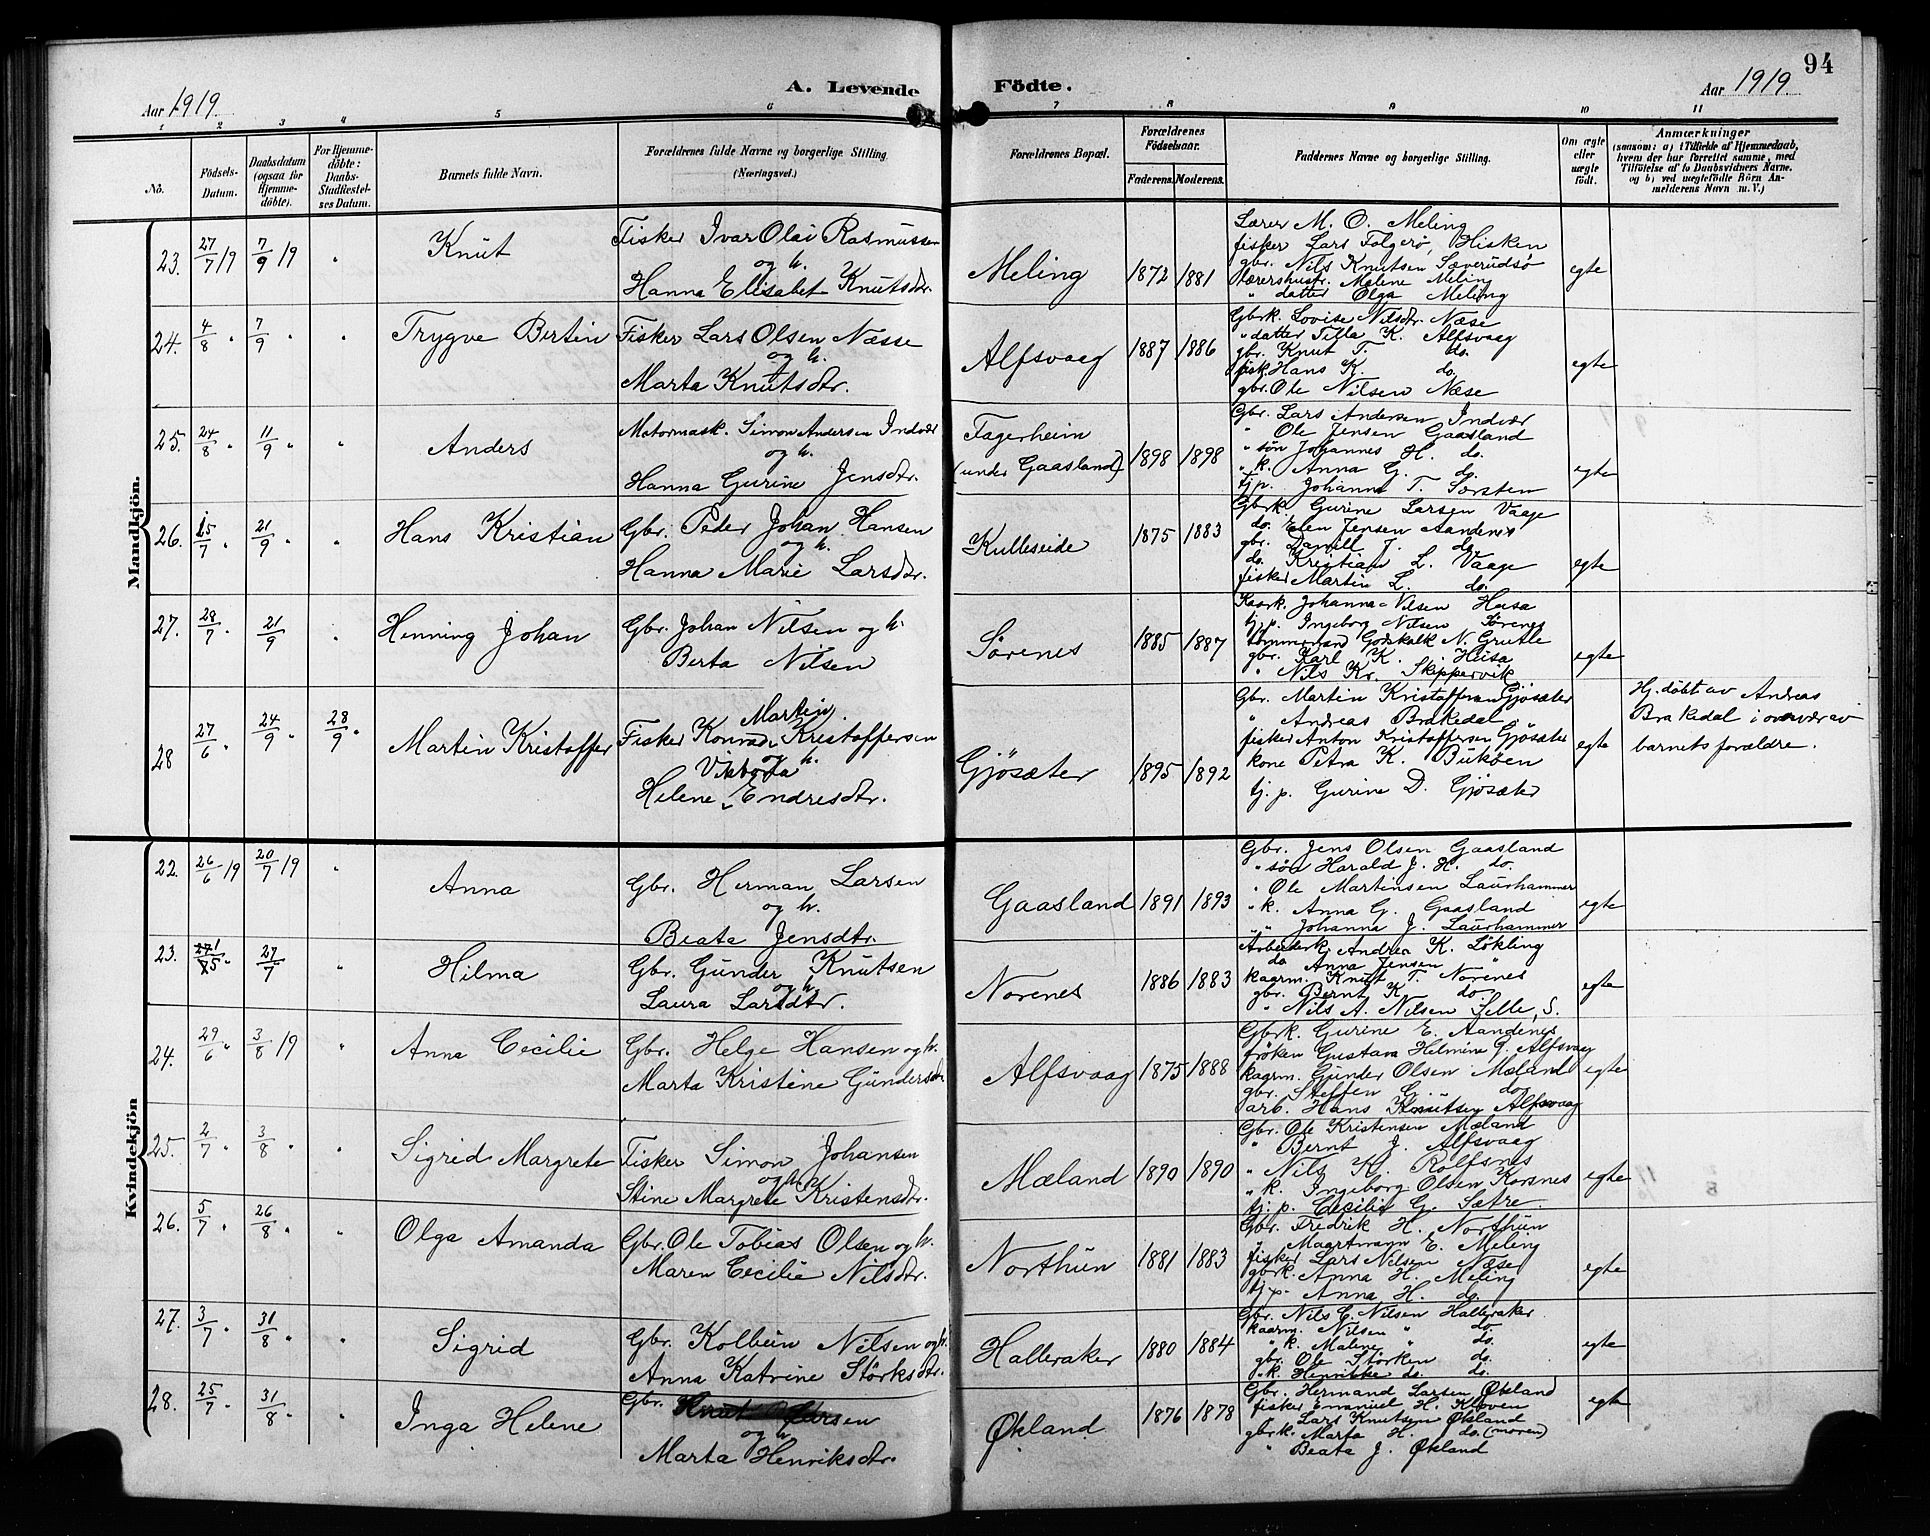 94
Aar 1919.
A. Levende Födte.
Aar 1919.
1 2 3 4 5 6 7 8 9 10 11
No.
Födsels-Datum.
Daabsdatum (ogsaa for Hjemmedöbte).
For Hjemmedöbte: Daabs-Stadfæstelses Datum.
Barnets fulde Navn.
Forældrenes fulde Navne og borgerlige Stilling. (Næringsvei.)
Forældrenes Bopæl.
Forældrenes Födselsaar.
Faderens. Moderens.
Faddernes Navne og borgerlige Stilling.
Om ægte eller uægte födt.
Anmærkninger (saasom: a) i Tilfælde af Hjemmedaab, hvem der har forrettet samme, med Tilföielse af to Daabsvidners Navne. og b) ved uægtefödte Börn Anmelderens Navn m. V.)
Mandkjön.
23. 27/7 19 7/9 19 "
Knut
Fisker Ivar Olai Rasmussen
og h.
Hanna Elisabet Knutsdtr.
Meling 1872 1881
Lærer M. O. Meling
fisker Lars Folgerö, Hisken
gbr. Nils Knutsen Sæverudsö
Lærershustr. Malene Meling
" datter Olga Meling
egte
24. 4/8 " 7/9 " "
Trygve Bertin
Fisker Lars Olsen Næsse
og h.
Marta Knutsdtr.
Alfsvaag 1887 1886
Gbrk. Lovise Nilsdtr. Næse
" datter Tilla K. Alfsvaag
gbr. Knut T. do.
fisk. Hans K. do.
gbr. Ole Nilsen Næse
egte
25. 24/8 " 11/9 " "
Anders
Motormask. Simon Andersen Indvær
og h.
Hanna Gurine Jensdtr.
Fagerheim
(under Gaasland) 1898 1898
Gbr. Lars Andersen Indvær
" Ole Jensen Gaasland
" sön Johannes H. do.
" k. Anna G. do.
tj.p. Johanna T. Sörsten
egte
26. 15/7 " 21/9 " "
Hans Kristian
Gbr. Peder Johan Hansen
og h.
Hanna Marie Larsdtr.
Kulleseide 1875 1883
Gbrk. Gurine Larsen Vaage
do. Elen Jensen Aandenes
gbr. Daniel J. do.
do. Kristian L. Vaage
fisker Martin L. do.
egte
27. 28/7 " 21/9 "
Henning Johan
Gbr. Johan Nilsen og h.
Berta Nilsen
Sörenes 1885 1887
Kaark. Johanna Nilsen Husa
tj.p. Ingeborg Nilsen Sörenes
tömmermand Godskalk N. Grutle
gbr. Karl K. Husa
" Nils Kr. Skippervik
egte
28 27/6 " 24/9 " 28/9 "
Martin Kristoffer
Martin
Fisker Konrad Kristoffersen
og h.
Viktoria
Helene Endresdtr.
Gjösæter 1895 1892
Gbr. Martin Kristoffersen Gjösæter
" Andreas Brakedal
fisker Anton Kristoffersen Gjösæter
kone Petra K. Buköen
tj. p. Gurine D. Gjösæter
egte
Hj. döbt av Andreas
Brakedal i overvær av
barnets forældre.
Kvindekjön
22. 26/6 19 20/7 19 "
Anna
Gbr. Herman Larsen
og h.
Beate Jensdtr.
Gaasland 1891 1893
Gbr. Jens Olsen Gaasland
" sön Harald J. H. do.
" Ole Martinsen Laurhammer
" k. Anna G. Gaasland
" " Johanna J. Laurhammer
egte
23. 27/7 "
Hilma
Gbr. Gunder Knutsen
og h.
Laura Larsdtr.
Norenes 1886 1883
Arbeiderk. Andrea K. Lökling
do Anna Jensen "
kaarm. Knut T. Norenes
gbr. Bernt K. do.
" Nils A. Nilsen Selle, S.
egte
24. 29/6 " 3/8 19 "
Anna Cecilie
Gbr. Helge Hansen og h.
Marta Kristine Gundersdtr.
Alfsvaag 1875 1888
Gbrk. Gurine E. Aandenes
fröken Gustava Helmine G. Alfsvaag
kaarm. Gunder Olsen Mæland
gbr. Steffen G. do.
arb. Hans Knutsen Alfsvaag
egte
25. 2/7 " 3/8 " "
Sigrid Margrete
Fisker Simon Johansen
og h.
Stine Margrete Kristensdtr.
Mæland 1890 1890
Gbr. Ole Kristensen Mæland
" Bernt J. Alfsvaag
" Nils K. Rolfsnes
" k. Ingeborg Olsen Korsnes
tj. p. Cecilie G. Sætre.
egte
26. 5/7 " 26/8 " "
Olga Amanda
Gbr. Ole Tobias Olsen og h.
Maren Cecilie Nilsdtr.
Northun 1881 1883
Gbr. Fredrik H. Northun
" Maartmann E. Meling
fisker Lars Nilsen Næse
gbrk. Anna H. Meling
tj.p. Anna H. do.
egte
27. 3/7 " 31/8 " "
Sigrid
Gbr. Kolbein Nilsen og h.
Anna Katrine Störksdtr.
Halleraker 1880 1884
Gbr. Nils C. Nilsen Halleraker
kaarm. Nilsen " do
" k. Malene " do.
gbr. Ole Störken do.
" k. Henrikke do. do.
egte
28. 25/7 " 31/8 " "
Inga Helene
Gbr. Knut Larsen
og h.
Marta Henriksdtr.
Økland 1876 1878
Gbr. Hermand Larsen Økland
fisker Emanuel H. Kloven
" Lars Knutsen Økland
gbrk. Marta H. do. (moren)
" Beata J. Økland
egte